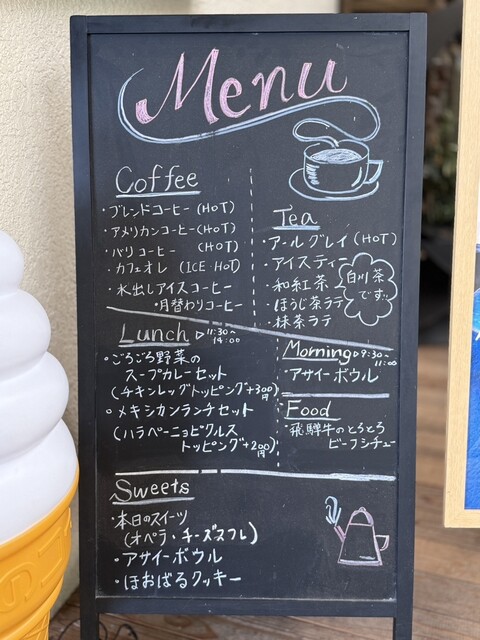 Menu
Coffee
・ブレンドコーヒー(HOT)
・アメリカンコーヒー(HOT)
・バリコーヒー (HOT)
・カフェオレ (ICE HOT)
・水出しアイスコーヒー
・月替わりコーヒー
Tea
・アールグレイ(HOT)
・アイスティー
・和紅茶
・ほうじ茶ラテ
・抹茶ラテ
白川茶
です。
Lunch ▷11:30~
14:00
・ごろごろ野菜の
スープカレーセット
(チキンレッグトッピング+300円)
・メキシカンランチセット
(ハラペーニョピクルス
トッピング+200円)
Morning▷9:30~
11:00
・アサイーボウル
Food
・飛騨牛のとろとろ
ビーフシチュー
Sweets
・本日のスイーツ
(オペラ・チーズスフレ)
・アサイーボウル
・ほおばるクッキー